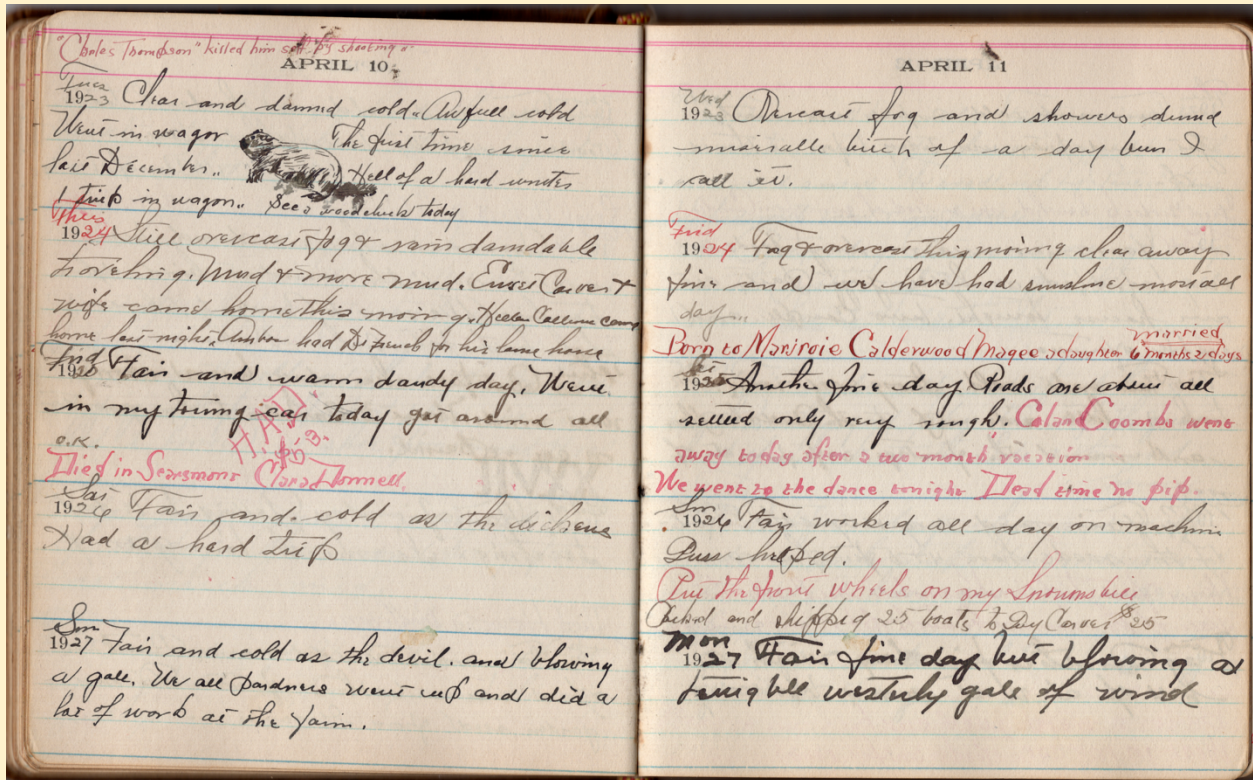 "Charles Thompson" killed him self by shooting a
APRIL 10
Tues
1923 Clear and damned cold. Awfull cold
Went in wagon The first time since
last December.. Hell of a hard
trip in wagon.. See a woodchuck today
Thurs
1924 Still overcast fog & rain damdable
traveling. Mud & more mud. Carver &
wife came home this morning. Hellen came
home last night. had Dr French for his lame horse
Frid
Fair and warm dandy day. Went
in my touring car today got around all
o.k. H.A.P.
Died in Searsmont Clara Donnell.
Sat
1926 Fair and cold as the dickens
Had a hard trip
Sun
1927 Fair and cold as the devil. and blowing
a gale. We all pardners went up and did a
lot of work at the farm.
APRIL 11
Wed
1923 Overcast fog and showers
miserable bitch of a day I
call it.
Frid
1924 Fog & overcast this moring clear away
fine and we have had sunshine most all
day...
married
Born to Marjroie Calderwood Magee a daughter 6 months 2 days
Sat
1925 Another fine day Roads are about all
setled only very rough. Coland Coombs went
away today after a two month vacation
We went to the dance tonight Dead time no pip.
Sun
1926 Fair worked all day on machine
helped.
Put the front wheels on my Snowmobile
and shipped 25 boats to Carver $25
Mon
1927 Fair fine day but blowing a
westerly gale of wind